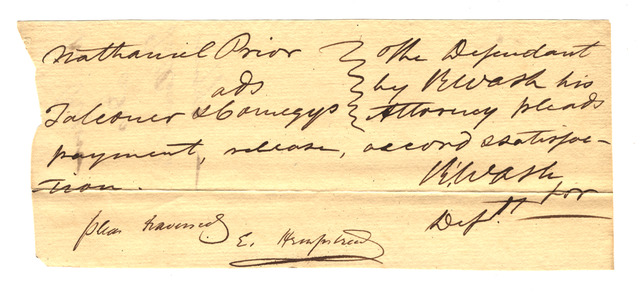 Nathaniel Prior } The Defendant
ads } by R. Wash his
Falconer & Comegys } Attorney pleads
payment, release, accord & satisfac-
-tion.
R. Wash
for
Deft.
pleas traversed
E. Hempstead